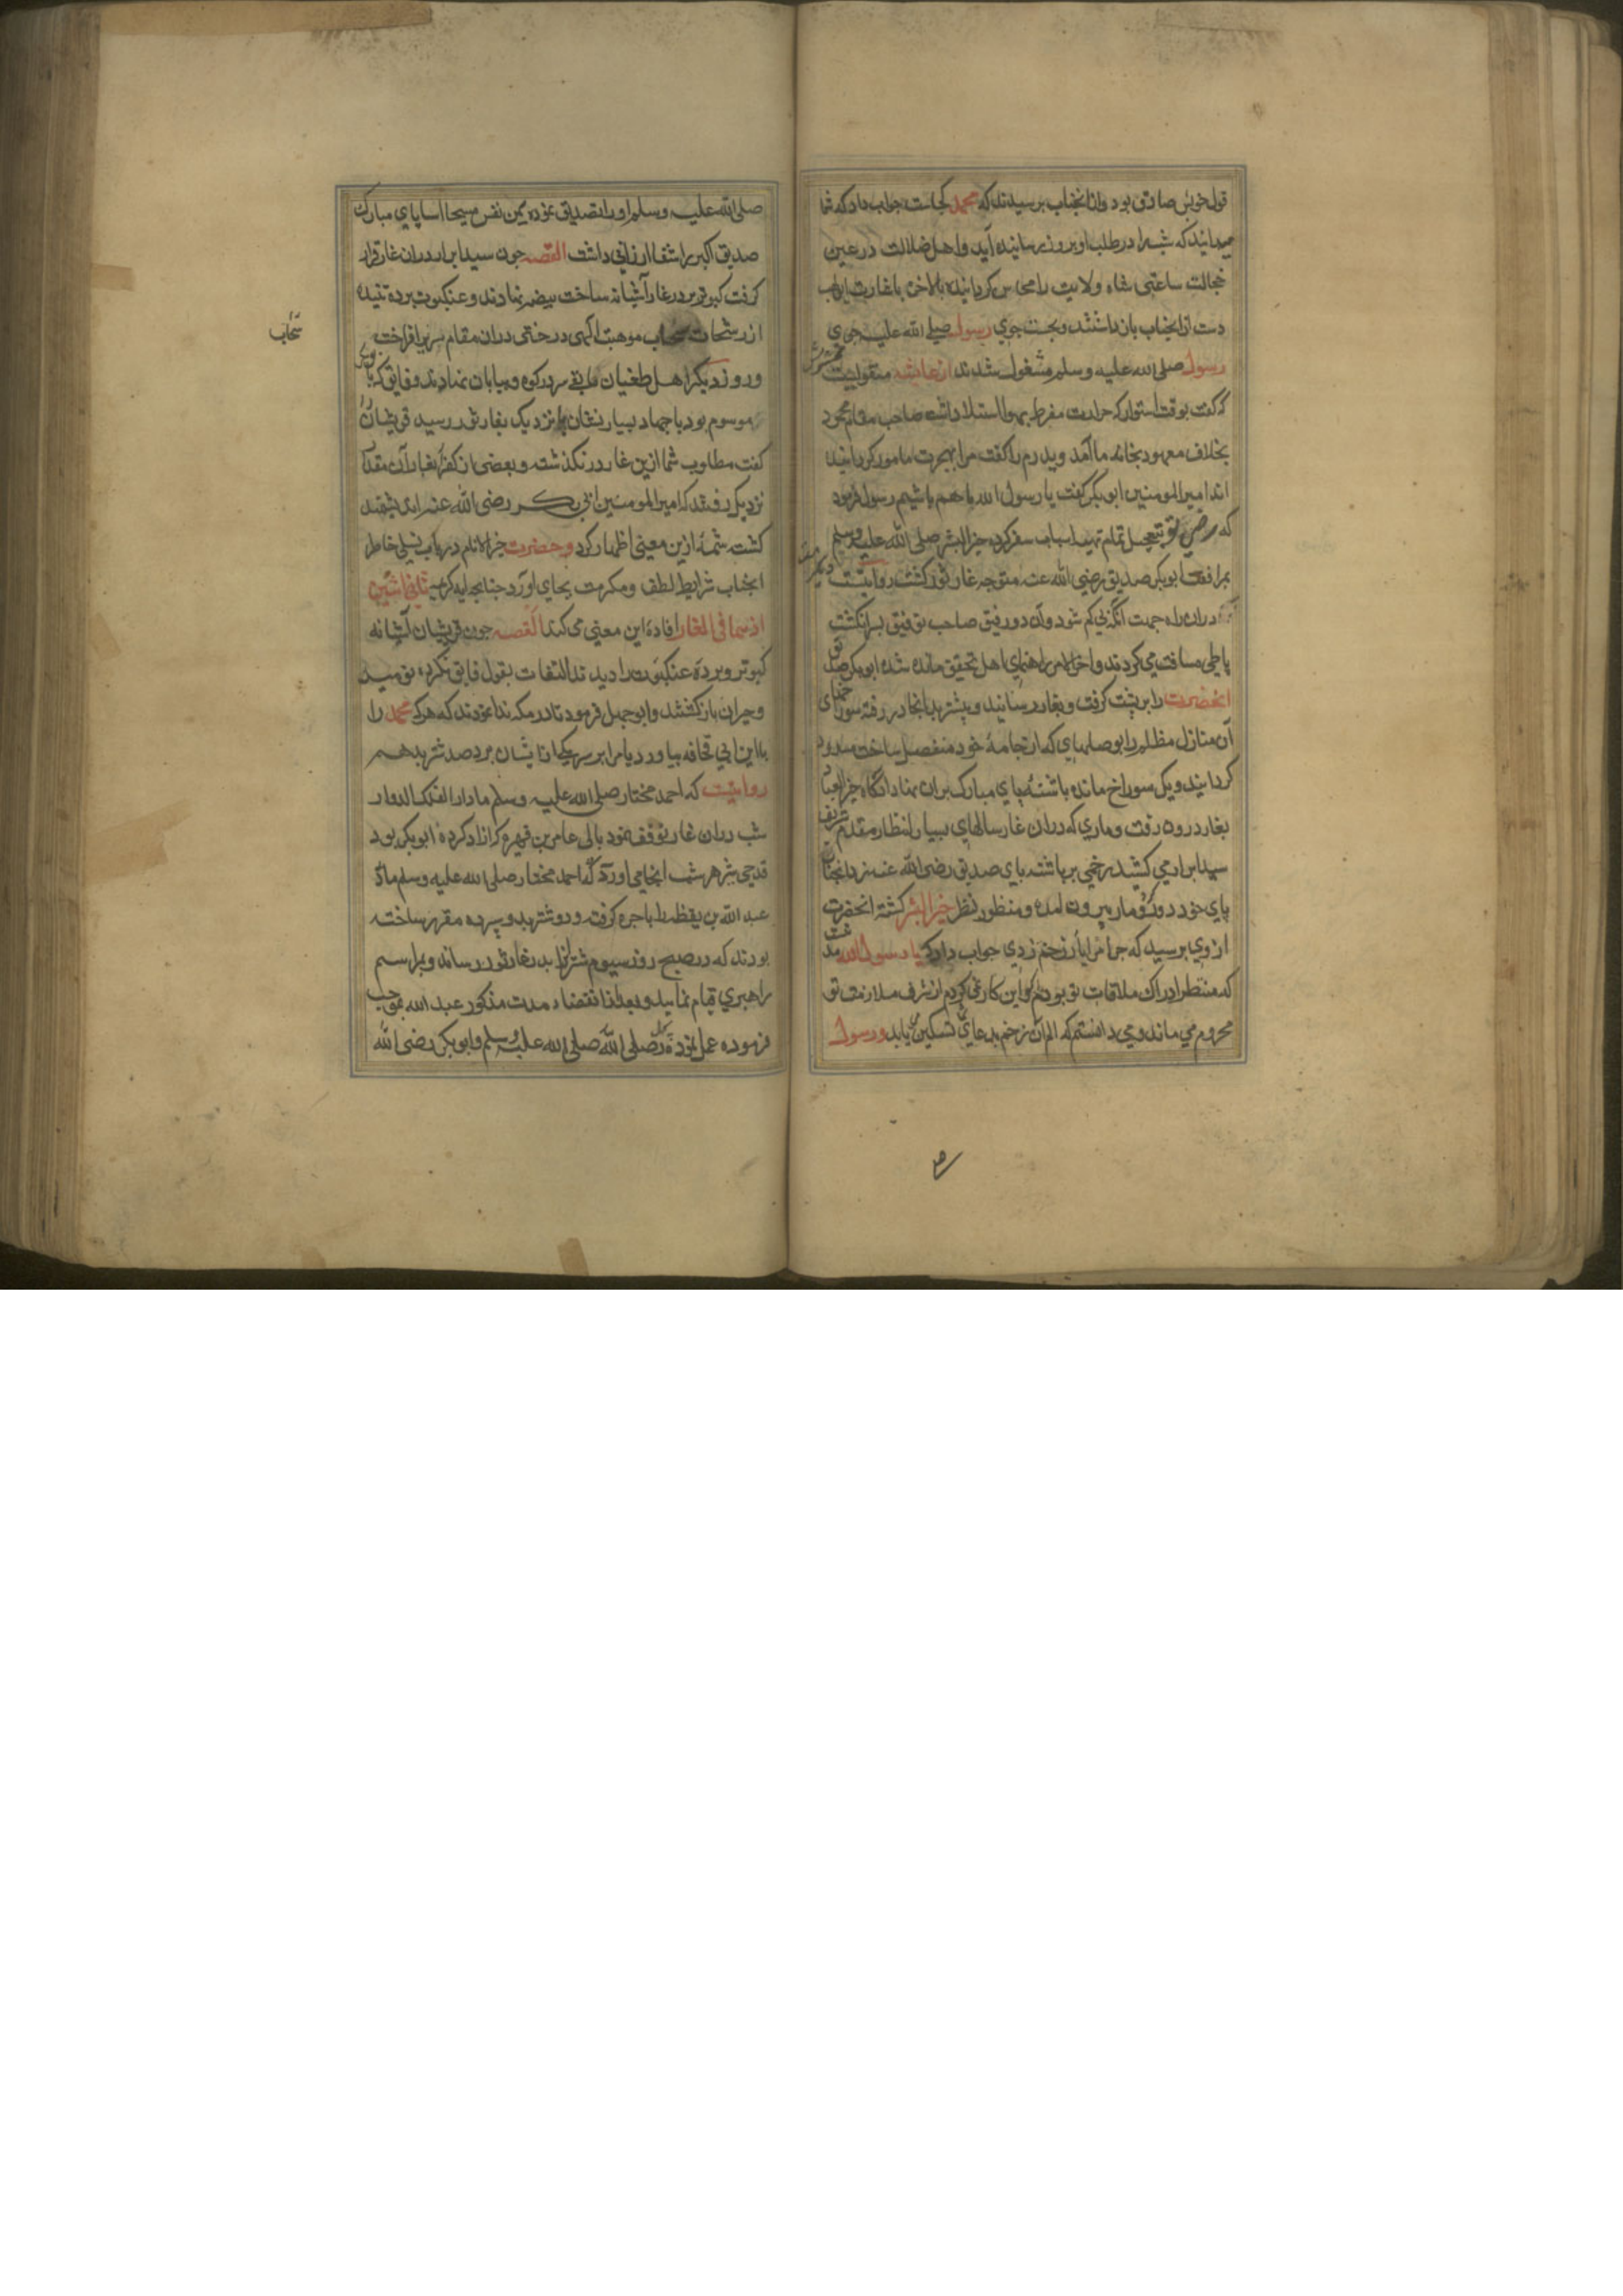 قول خویش صادق بود و از آنجناب برسیدند که محمد کجاست جواب داد که شما
میدانید که شب را در طلب او بروز رسانیده آید و اهل ضلالت در عین
خجالت ساعتی شاه ولایت را محبوس کردانیده بالاخره
دست از آنجناب بازداشتند و بجست جوی رسول صلی الله علیه جوی
رسول صلی الله علیه وسلم مشغول شدند از عایشه منقولیست
که کفت بوقت استوا که حرارت مفرط بهوا استیلا داشت صاحب مقام محمود
بخلاف معهود بخانه ما آمد و پدرم را کفت مرا بهجرت مامور کردانیده
اند امیرالمومنین ابوبکر کفت یا رسول الله با هم باشیم رسول فرمود
که بتعجیل تمام تهیه اسباب سفر کرده خیرالبشر صلی الله علیه وسلم
بمرافقت ابوبکر صدیق رضی الله عنه متوجه غار ثور کشت روایتست
دران راه جهت آنکه پی کم شود و آن دو رفیق صاحب توفیق بسر انکشت
پا طی مسافت می کردند و اخرالامر راهنمای اهل تحقیق مانده شده ابوبکر صدیق
انحضرت را بر پشت کرفت و بغار رسانید و پیشتر بدانجا در رفته سوراخهای
آن منازل مظلم را بوصلهای که از جامهٔ خود منفصل ساخت مسدود
کردانید و یک سوراخ مانده پاشنهٔ پای مبارک بران نهاد آنکاه خیرالعباد
بغار درون رفت و ماری که دران غار سالهای بسیار انتظار مقدم شریف
سید ابرار می کشید زخمی بر پاشنه پای صدیق رضی الله عنه زد آنجناب
پای خود دور کرد و مار بیرون امده و منظور نظر خیر البشر کشته انحضرت
ازوی برسید که چرا مرا یار زخم زدی جواب داد که یا رسول الله
که منتظر ادراک ملاقات تو بودم کر این کار نمی کردم از شرف ملازمت تو
محروم می ماندم و می دانستم که الم آن زخم بدعای تو تسکین می یابد و رسول
صلی الله علیه وسلم او را تصدیق نموده بیمن نفس مسیحا اسا پای مبارک
صدیق اکبر را شفا ارزانی داشت القصه چون سید ابرار دران غار قرار
کرفت کبوتر بر در غار آشیانه ساخت بیضه نهادند و عنکبوت پرده تنیده
از رشحات سحاب موهبت الهی درختی دران مقام سر برافراخت
سحاب
و روز دیکر اهل طغیان سر در کوه و بیابان نهادند و فایق که
موسوم بود با جهاد بسیار نشان نزدیک بغار ثور رسید قریشان را
کفت مطلوب شما ازین غار در نکذشته و بعضی از کفره بغار آن مقدار
نزدیک رفتند که امیر المومنین ابی بکر رضی الله عنه اندیشمند
کشت شمهٔ ازین معنی اظهار کرد و حضرت خیرالانام در باب تسلی خاطر
انجناب شرایط لطف و مکرمت بجای آورد چنانچه ایه کریمه ثانی اثنین
اذ هما فی الغار افادهٔ این معنی می کند القصه چون قریشان آشیانه
کبوتر و پردهٔ عنکبوت را دیدند التفات بقول فایق نکرده نومید
و حیران بازکشتند و ابوجهل فرمود تا در مکه ندا نمودند که هر که محمد را
یا ابن ابی قحافه بیاورد یا مرا بر سر یکی ازایشان برد صد شتر بدهم
روایتست که احمد مختار صلی الله علیه وسلم مادار الفلک الدوار
شب دران غار توقف نمود بالی عامر بن فهیره که ازاد کردهٔ ابوبکر بود
قدحی شیر هر شب انجا می اورد که احمد مختار صلی الله علیه وسلم
عبد الله بن یقظه را باجره کرفته و دو شتر بدو سپرده مقرر ساخته
بودند که در صبح روز سیوم شتران بدر غار ثور رساند و براسم
راهبری قیام نماید و بعد از انقضاء مدت مذکور عبد الله بموجب
فرموده عمل نموده رسول صلی الله صلی الله علیه وسلم و ابوبکر رضی الله